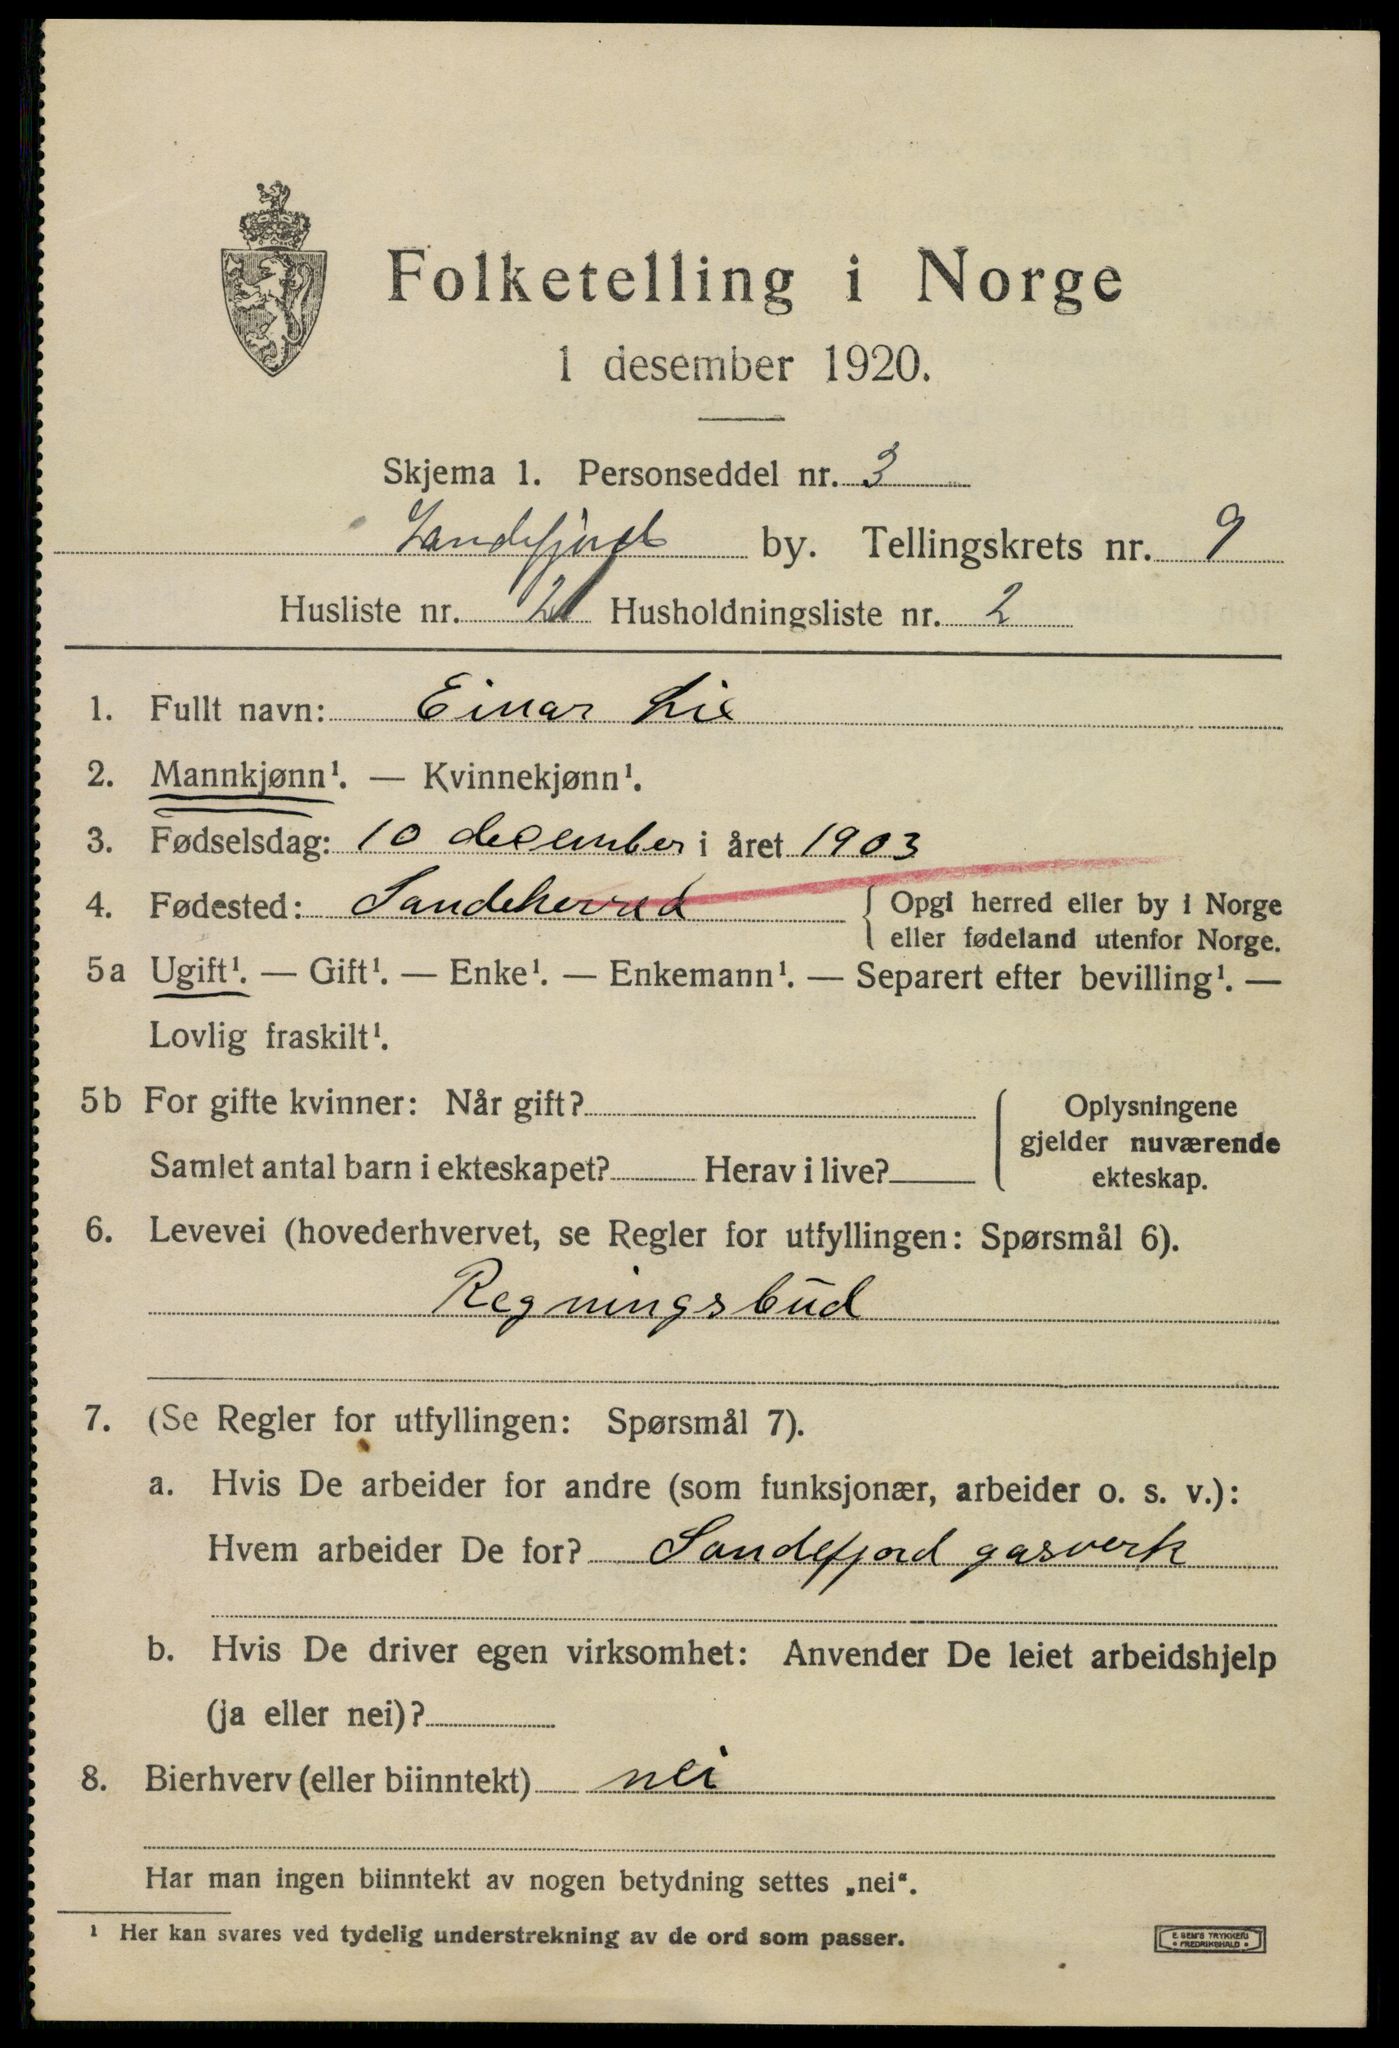 Folketelling i Norge
1 desember 1920.
Skjema 1. Personseddel nr. 3
Sandefjord by. Tellingskrets nr. 9
Husliste nr. 2 Husholdningsliste nr. 2
1. Fullt navn: Einar Lie
2. Mannkjønn¹. — Kvinnekjønn¹.
3. Fødselsdag: 10 december i året 1903
4. Fødested: Sandeherred { Opgi herred eller by i Norge
eller fødeland utenfor Norge.
5a Ugift¹. — Gift¹. — Enke¹. — Enkemann¹. — Separert efter bevilling¹. —
Lovlig fraskilt¹.
5b For gifte kvinner: Når gift? { Oplysningene
gjelder nuværende
Samlet antal barn i ekteskapet? Herav i live? ekteskap.
6. Levevei (hovederhvervet, se Regler for utfyllingen: Spørsmål 6).
Regningsbud
7. (Se Regler for utfyllingen: Spørsmål 7).
a. Hvis De arbeider for andre (som funksjonær, arbeider o. s. v.):
Hvem arbeider De for? Sandefjord gasverk
b. Hvis De driver egen virksomhet: Anvender De leiet arbeidshjelp
(ja eller nei)?
8. Bierhverv (eller biinntekt) nei
Har man ingen biinntekt av nogen betydning settes „nei“.
¹ Her kan svares ved tydelig understrekning av de ord som passer.
E. SEM'S TRYKKERI
• FREDRIKSHALD •